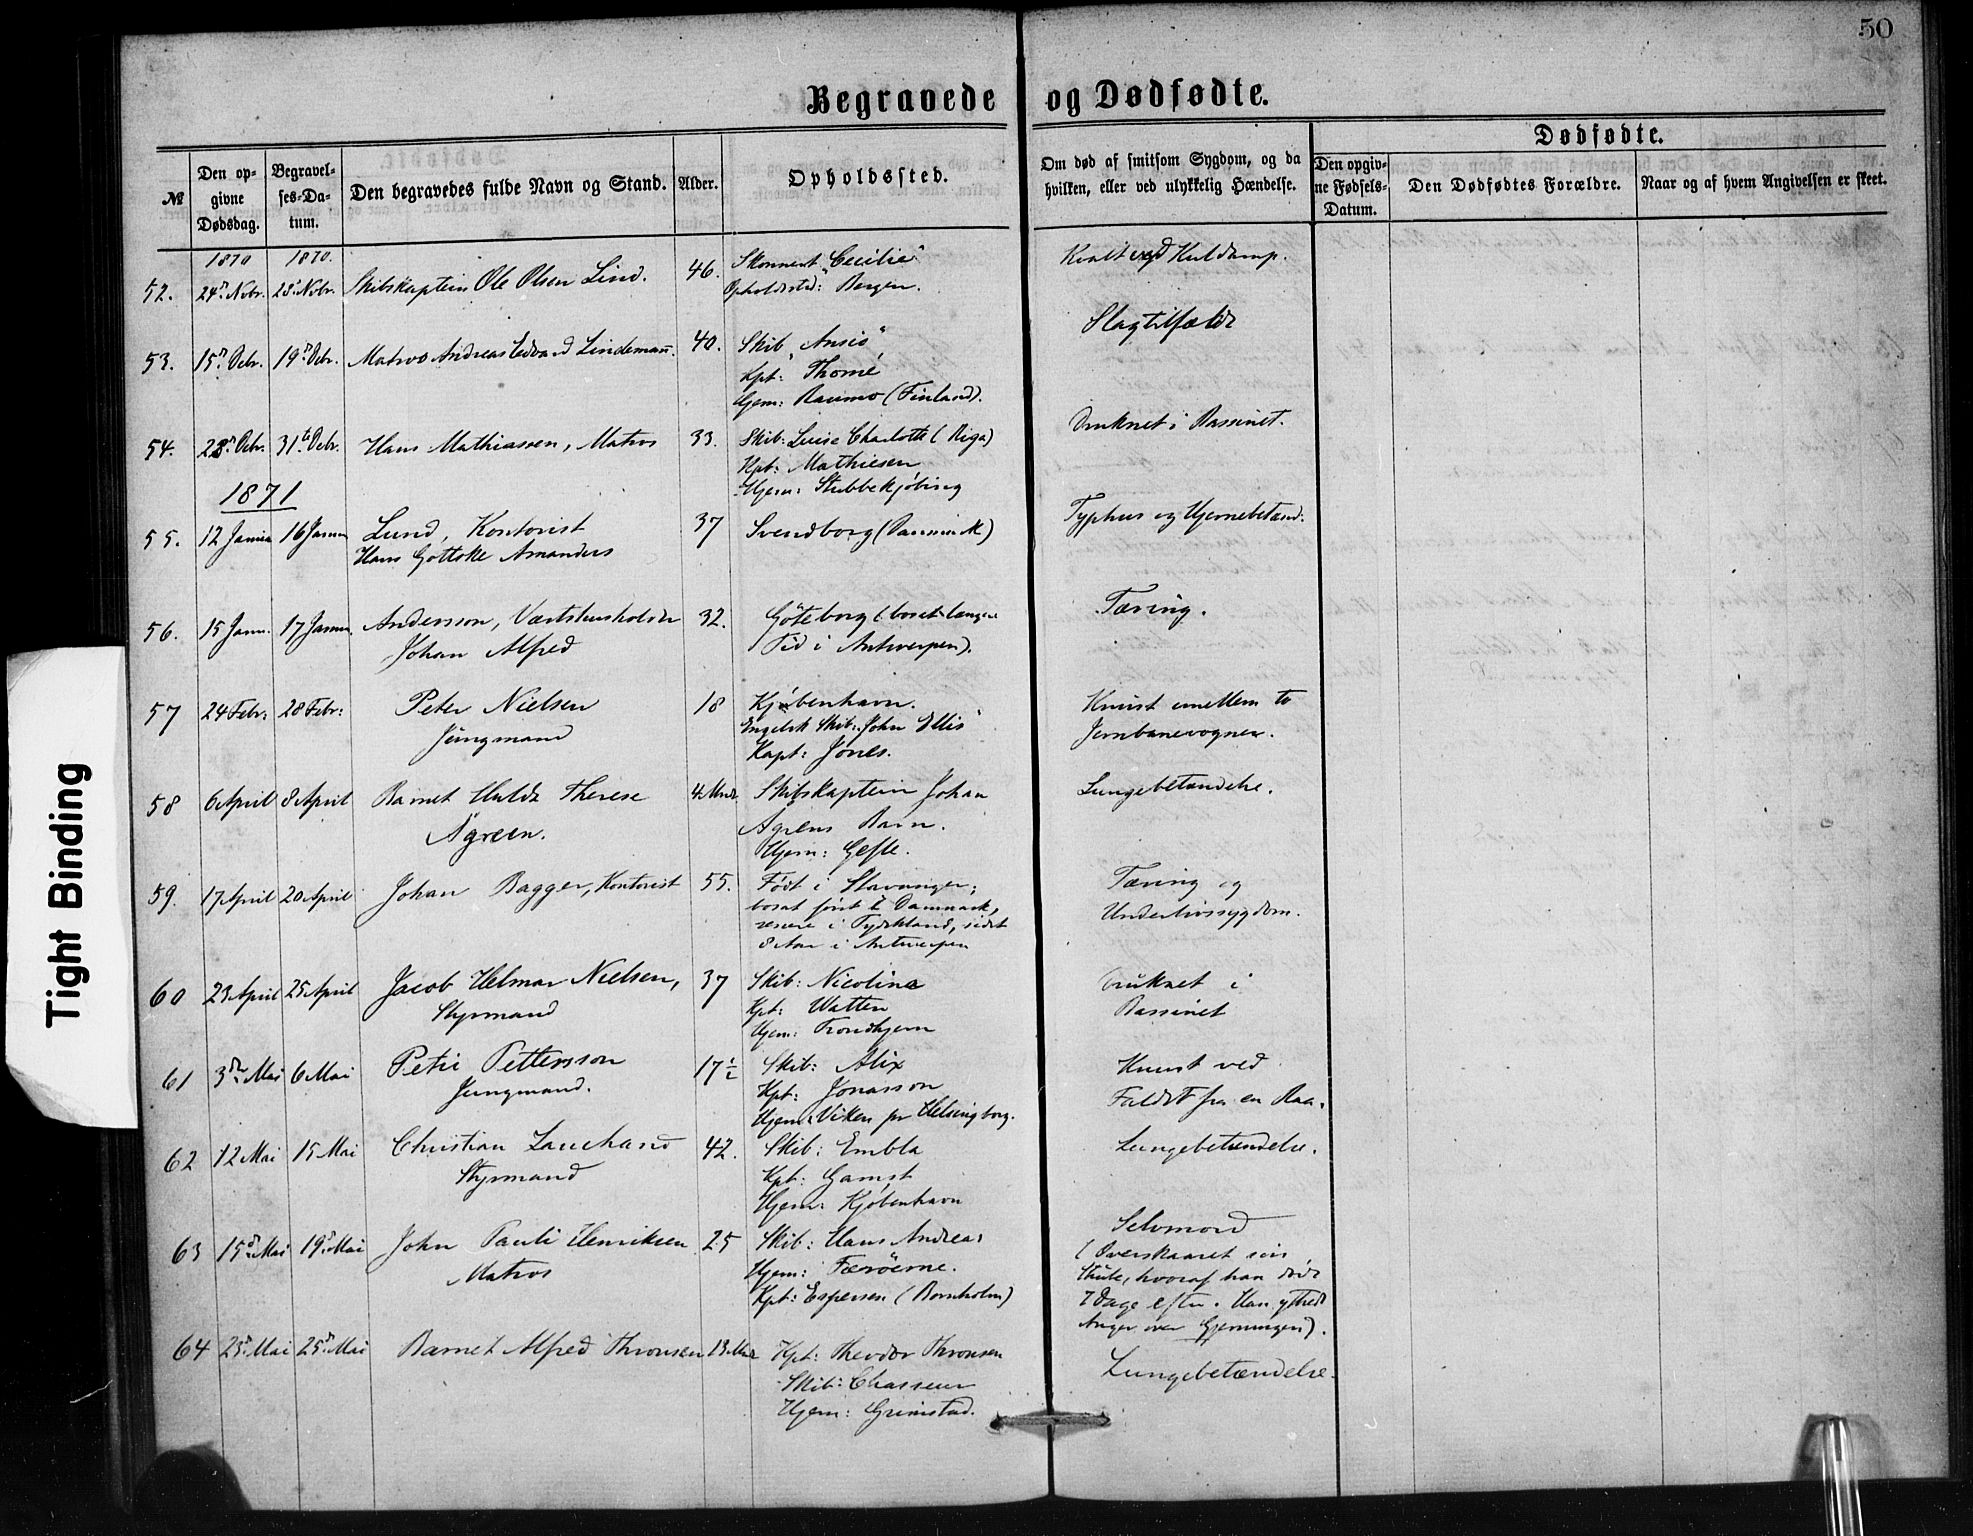 50
Begravede og Dødfødte.
Tight Binding
№
Den opgivne Dødsdag.
Begravelses-Datum.
Den begravedes fulde Navn og Stand.
Alder.
Opholdssted.
Om død af smitsom Sygdom, og da hvilken, eller ved ulykkelig Hændelse.
Dødfødte.
Den opgivne Fødsels-Datum.
Den Dødfødtes Forældre.
Naar og af hvem Angivelsen er skeet.
1870 1870.
52. 24d Nobr. 28 Nobr. Skibskaptein Ole Olsen Lind. 46. Skonnert "Cecilie"
Opholdssted: Bergen.
Kvalt ved Kuldamp.
53. 15d Debr. 19d Debr. Matros Andreas Edvard Lindemann. 40. Skib "Ansio"
Kpt: Thomé
Hjem: Raumo (Finland).
Slagtilfælde
54. 28d Debr. 31te Debr. Hans Mathiassen, Matros 33. Skib: Luise Charlotte (Riga)
Kpt: Mathiesen
Hjem: Stubbekjöbing
Druknet i Bassinet.
1871
55. 12 Januar 16 Januar Lund, Kontorist 37 Svendborg (Danmark)
Hans Gottske Amanders
Typhus og Hjernebetænd:
56. 15 Janu. 17 Januar Andersson, Værtshusholder 32. Göteborg (bosat længere
Johan Alfred Tid i Antwerpen).
Tæring.
57 24 Febr: 28 Febr: Peter Nielsen 18 Kjøbenhavn.
Jungmand Engelsk Skib: "John Ellis"
Kapt: Jones.
Knust imellem to
Jernbanevogner.
58 6 April 8 April Barnet Hulda Therese 4 Mndr Skibskaptein Johan
Ågreen. Ågrens Barn.
Hjem: Gefle.
Lungebetændelse.
59. 17 April 20 April Johan Bagger, Kontorist 55. Født i Stavanger;
bosat först i Danmark,
senere i Tydskland, sidst
8 Aar i Antwerpen
Tæring og
Underlivssygdom.
60 23 April 25 April Jacob Helmar Nielsen, 37 Skib: Nicolina
Styrmand Kpt: Watten
Hjem: Trondhjem
Druknet i
Bassinet
61 3die Mai 6 Mai Petri Pettersson 17½ Skib: Alix
Jungmand. Kpt: Jonasson
Hjem: Viken pr Helsingborg.
Knust ved
Faldet fra en Raa.
62 12 Mai 15 Mai Christian Lauchand 42. Skib: Embla
Styrmand Kpt: Gamst
Hjem: Kjöbenhavn
Lungebetændelse.
63 15d Mai 19d Mai John Pauli Henriksen 25 Skib: Hans Andreas
Matros Hjem: Færöerne.
Kpt: Espersen (Bornholm)
Selvmord
(Overskaaret sin
Strube, hvoraf han døde
7 Dage efter. Han ytrede
Anger over Gjerningen).
64 23d Mai 25d Mai Barnet Alfred Thronsen 13 Mndr Kpt: Theodor Thronsen
Skib: Chasseur
Hjem: Grimstad.
Lungebetændelse.